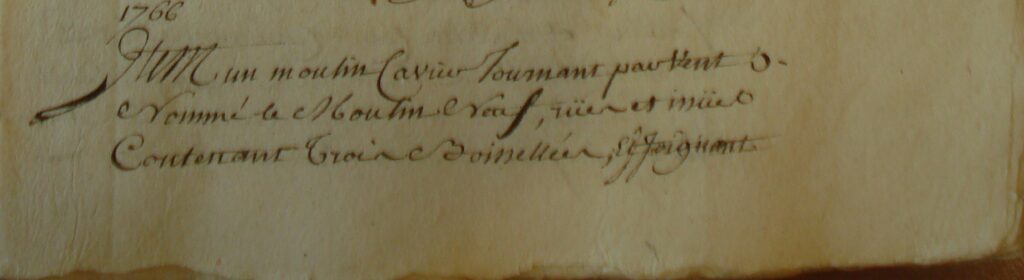 1766
Item un moulin Cavier Tournant par Vent
Nommé le Moulin Neuf, rües et inües
Contenant Trois Boisellées, Et Joignant